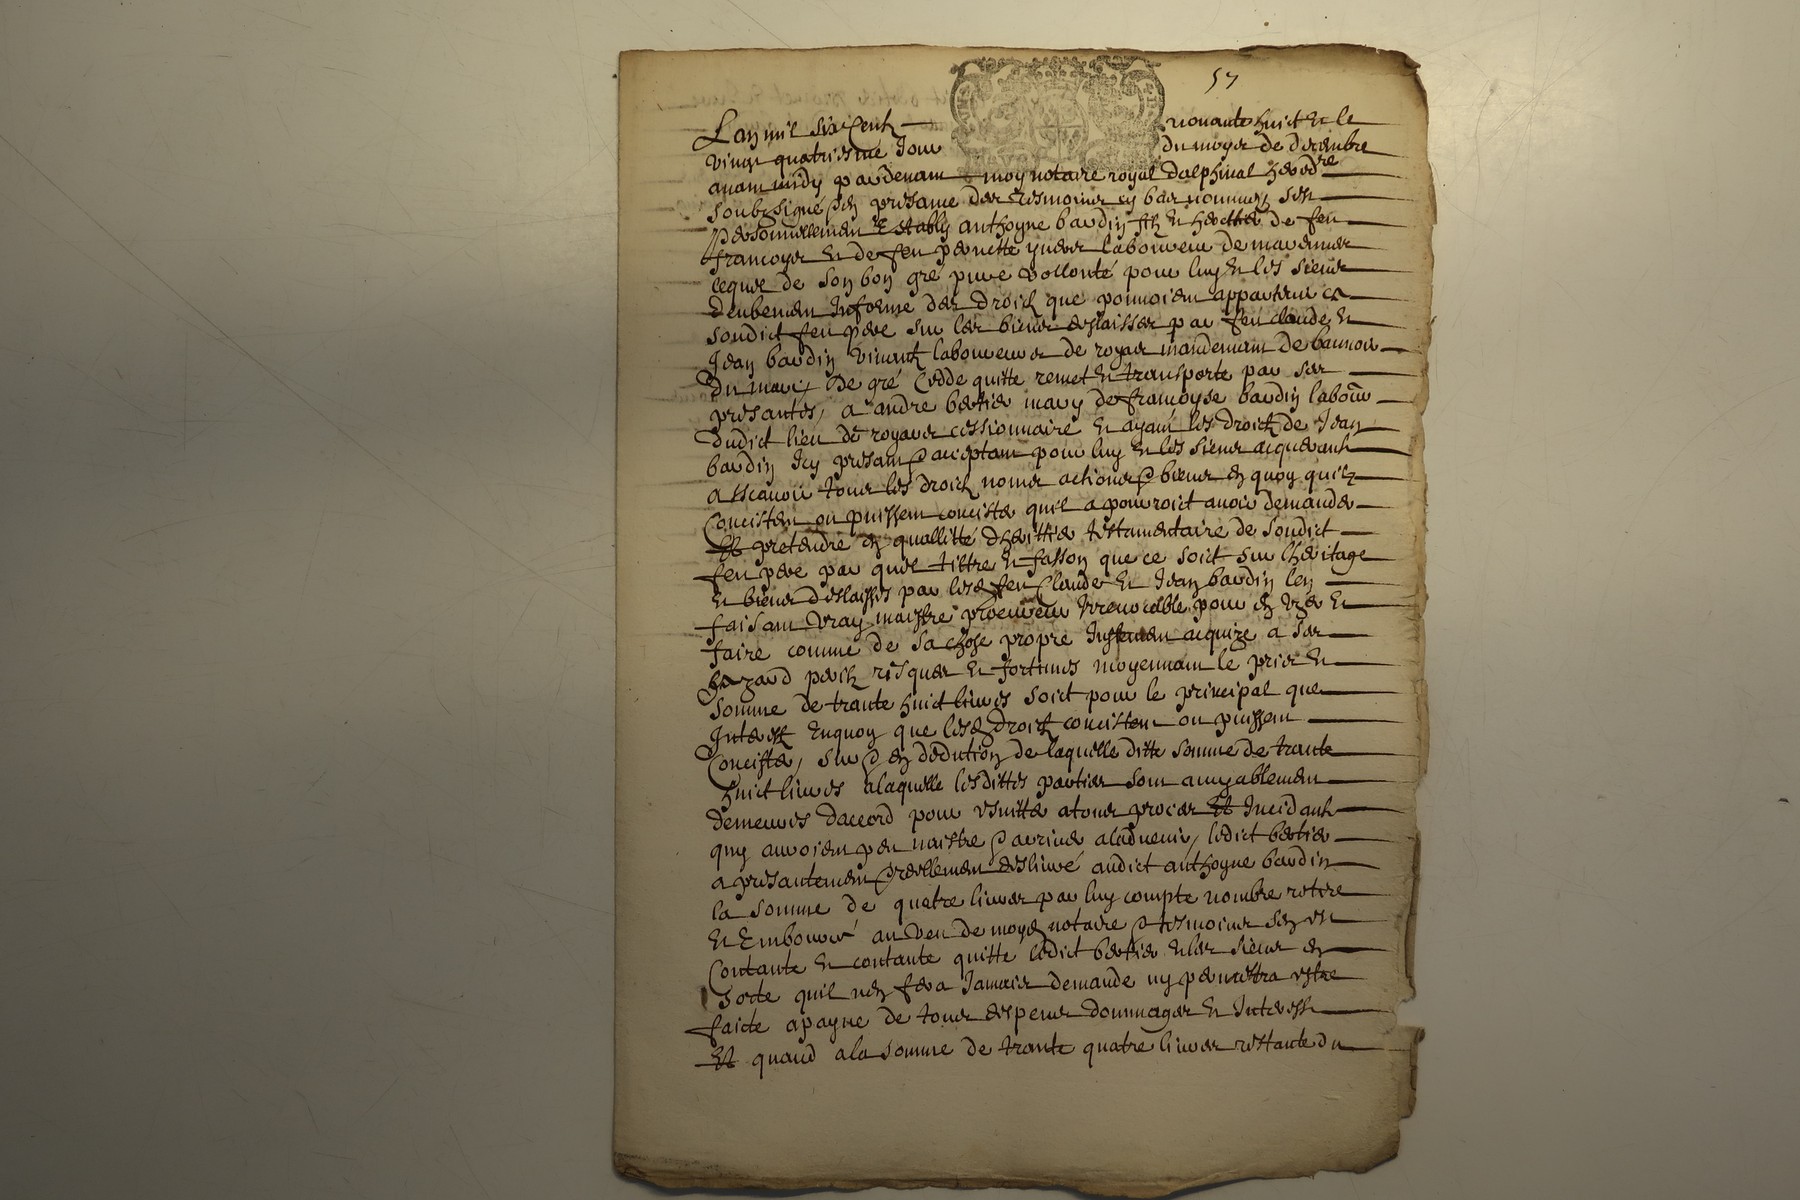 57
Lan mil six centz nonante huict & le
vingt quatriesme Jour du moys de decembre
avant midy pardevant moy notaire royal dalphinal hered.re
soubzsigné & en presance des tesmoins cy bas nommez sest
personnellement estably anthoyne bardin filz & herittier de feu
francoys & de feu pernette laboureur de
lequel de son bon gré pure vollonté pour luy & les siens
deubement Informe des droictz que pouvoient appartenir a
sondict feu pere sur les biens deslaissés par feu claude &
Jean bardin vivantz laboureurs de royas mandement de
de gré cedde quitte remet & transporte par ses
presantes, a andre bertier mary de francoyse bardin labour
dudict lieu de royas cessionnaire & ayant les droictz de Jean
bardin Icy presant & acceptant pour luy & les siens acquerantz
a scavoir tous les droictz noms actions & biens en quoy quilz
concistent ou puissent concister quil a pourroict avoir demander
& pretendre en quallitté dherittier testamentaire de sondict
feu pere par quel tiltre & fasson que ce soict sur lheritage
& biens deslaissés par lesd feu Claude & Jean bardin len
faisant vray maistre procureur Irrevocable pour en uzer &
faire comme de sa chose propre Justement acquize a ses
hazard perilz risques & fortunes moyennant le prix &
somme de trante huict livres soict pour le principal que
Interestz Enquoy que lesd droictz concistent ou puissent
concister, sur & en dedution de laquelle ditte somme de trante
huict livres a laquelle lesdittes parties sont amyablement
demeurés daccord pour esvitter a tous proces & Incidantz
quy auroient peu naistre & arriver a ladvenir, ledict bertier
a presantement & reellement deslivré audict anthoyne bardin
la somme de quatre livres par luy compté nombré retiré
& Emboursé au veu de moyd notaire & tesmoins sen est
contanté & contante quitte ledict bertier & les siens en
sorte quil nen fera Jamais demande ny permettra estre
faicte a payne de tous despens dommages & Interestz
& quand a la somme de trante quatre livres restante du